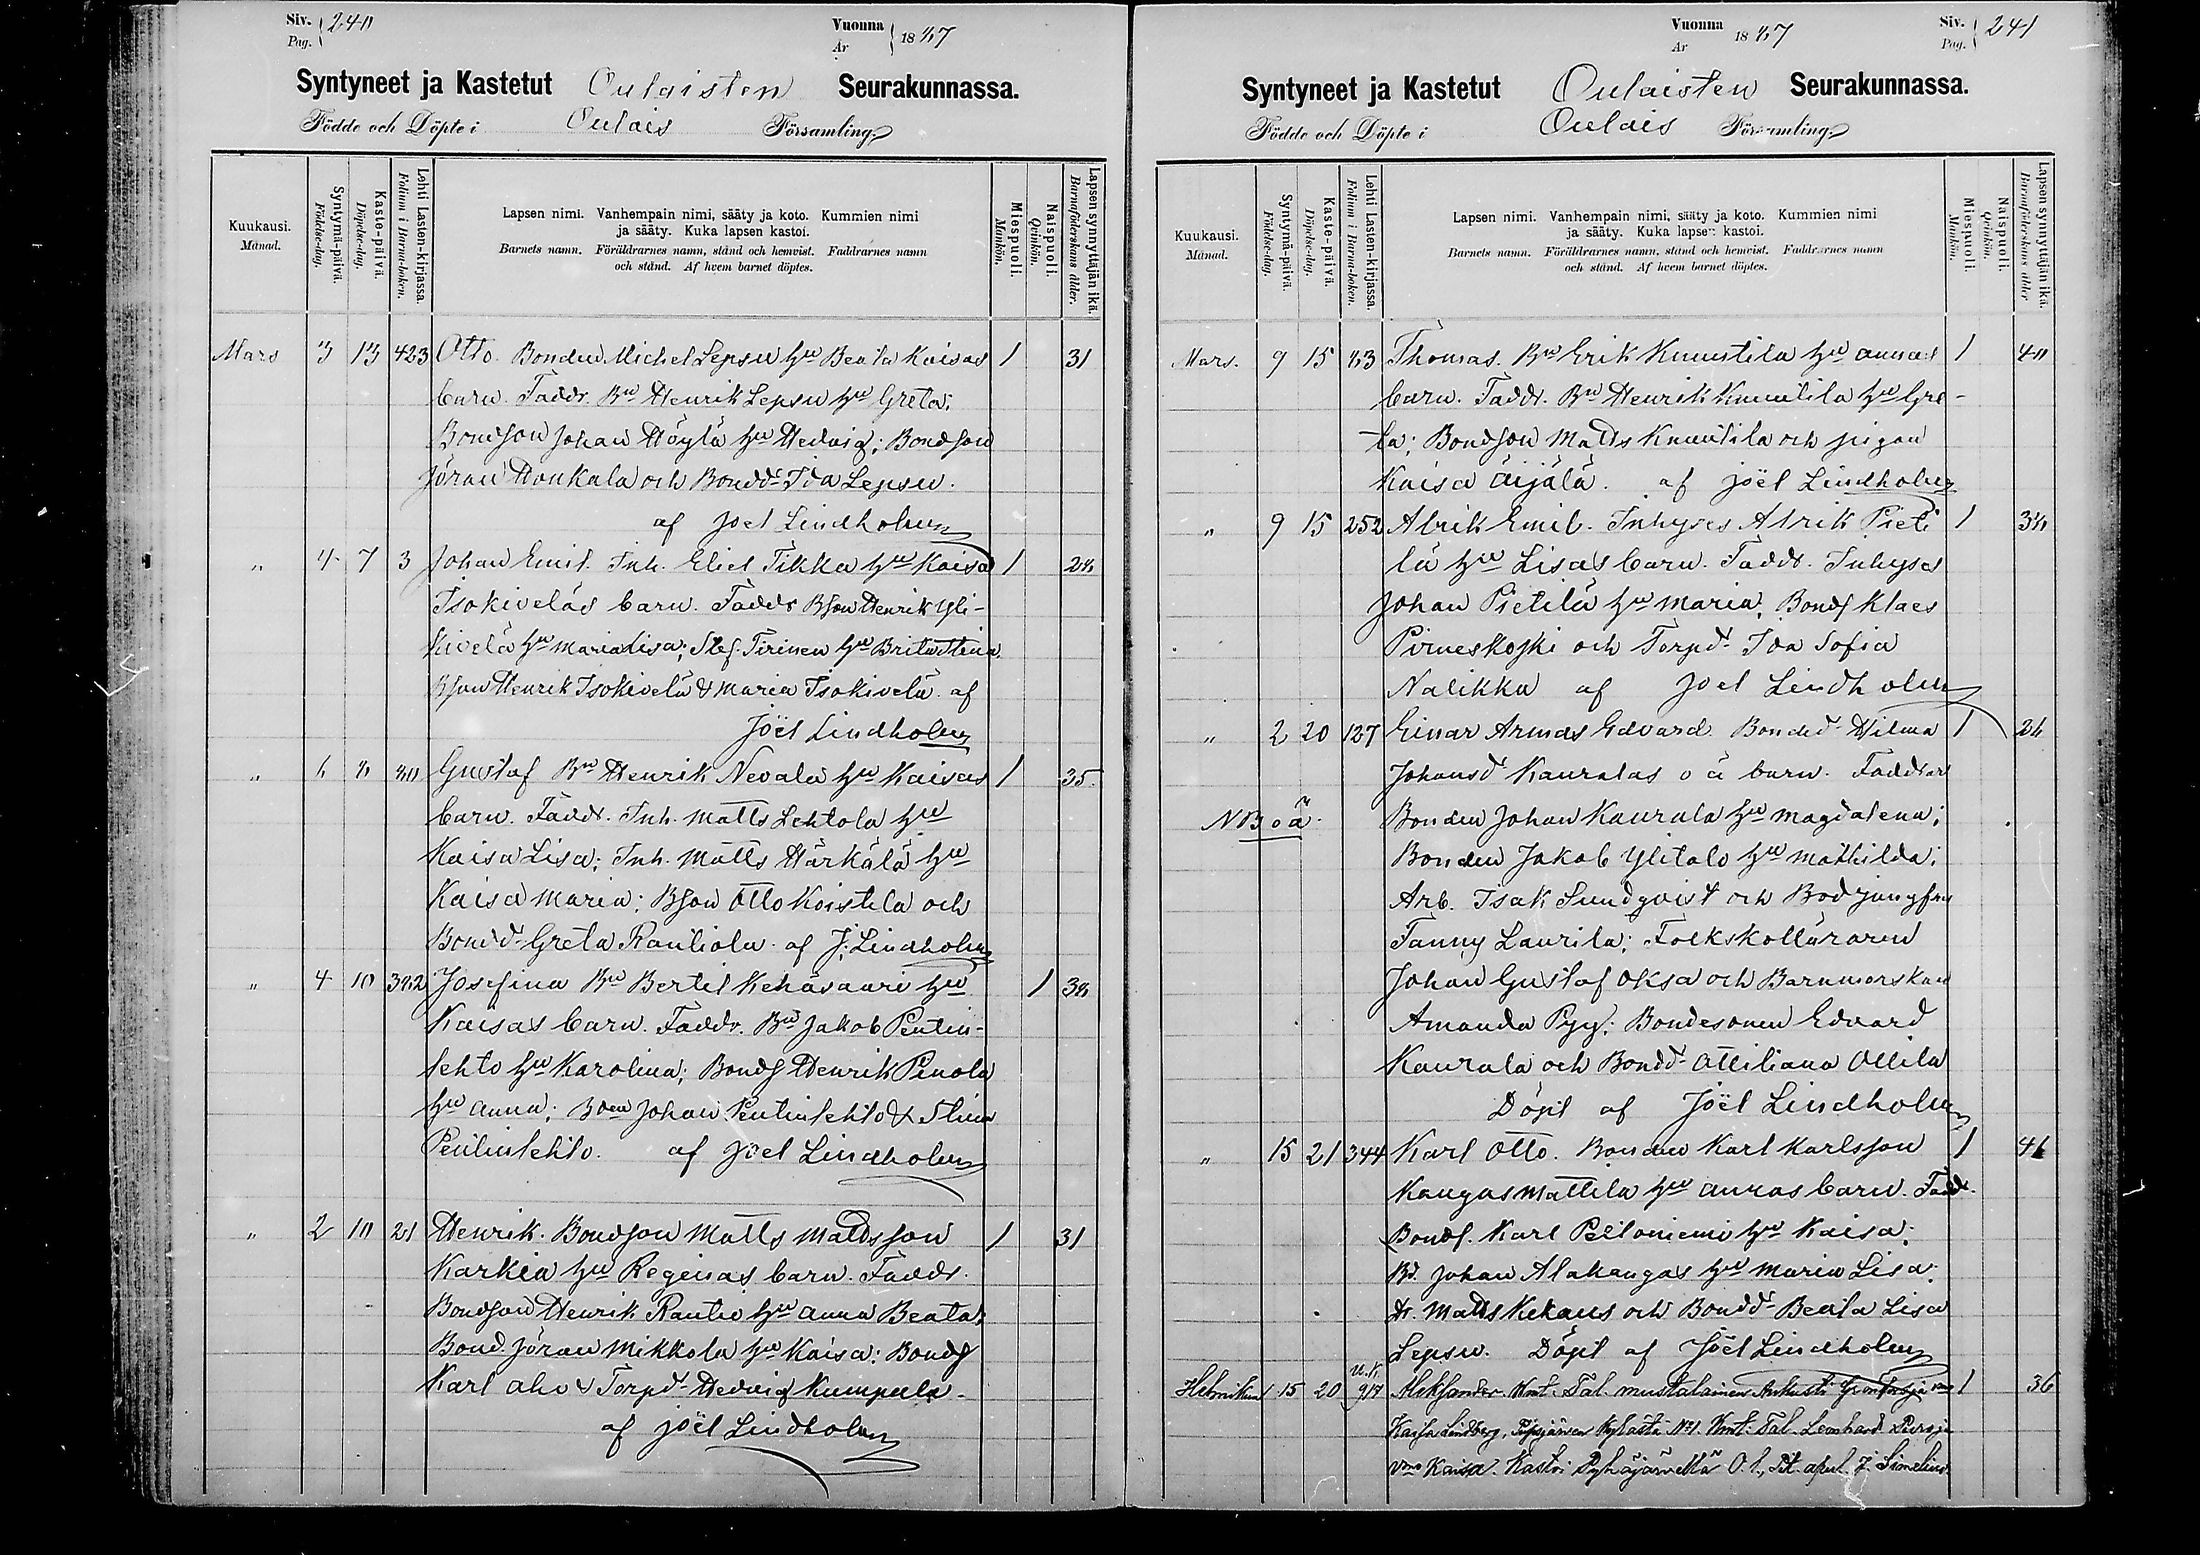 Siv. 240
Pag.
Vuonna 1887
År
Syntyneet ja Kastetut Oulaisten Seurakunnassa.
Födde och Döpte i Oulais Församling
Kuukausi.
Månad.
Syntymä-päivä.
Födelse-dag.
Kaste-päivä.
Döpelse-dag.
Lehti Lasten-kirjassa.
Folium i Barna-boken.
Lapsen nimi. Vanhempain nimi, sääty ja koto. Kummien nimi
ja sääty. Kuka lapsen kastoi.
Barnets namn. Föräldrarnes namn, stånd och hemvist. Faddrarnes namn
och stånd. Af hvem barnet döptes.
Miespuoli.
Mankön.
Naispuoli.
Quinkön.
Lapsen synnyttäjän ikä.
Barnaföderskans ålder.
Mars 3 13 423 Otto. Bonden Michel Lepsu hu Beata Kaisas 1 31
barn. Faddr. Bn Henrik Lepsu hu Greta;
Bondson Johan Höylä hu Hedvig; Bondson
Jöran Honkala och Bondd. Ida Lepsu.
af Joel Lindholm
" 4 7 3 Johan Emil. Inh. Eliel Tikka hu Kaisa 1 28
Isokiveläs barn. Faddr Bson Henrik Yli-
kivelä hu Maria Lisa; Stef. Tirinen hu Brita Stina
Bson Henrik Isokivelä & Maria Isokivelä. af
Joël Lindholm
" 6 8 80 Gustaf Bn Henrik Nevala hu Kaisas 1 35.
barn. Faddr. Inh. Matts Lehtola hu
Kaisa Lisa; Inh. Matts Härkälä hu
Kaisa Maria; Bson Otto Koistila och
Bondd. Greta Rautiola. af J. Lindholm
" 4 10 382 Josefina Bn Bertil Kehäsaari hu 1 38
Kaisas barn. Faddr. Bn Jakob Pentin-
lehto hu Karolina; Bonds Henrik Pinola
hu Anna; Johan Pentinlehto & Stina
Pentinlehto. af Joel Lindholm
" 2 10 21 Henrik. Bondson Matts Mattsson 1 31
Karkia hu Reginas barn. Faddr.
Bondson Henrik Rautio hu Anna Beata;
Bond. Jöran Mikkola hu Kaisa; Bonds
Karl Aho & Torpd. Hedvig Kumpula.
af Joël Lindholm
Vuonna 1887
År
Siv. 241
Pag.
Syntyneet ja Kastetut Oulaisten Seurakunnassa.
Födde och Döpte i Oulais Församling
Kuukausi.
Månad.
Syntymä-päivä.
Födelse-dag.
Kaste-päivä.
Döpelse-dag.
Lehti Lasten-kirjassa.
Folium i Barna-boken.
Lapsen nimi. Vanhempain nimi, sääty ja koto. Kummien nimi
ja sääty. Kuka lapsen kastoi.
Barnets namn. Föräldrarnes namn, stånd och hemvist. Faddrarnes namn
och stånd. Af hvem barnet döptes.
Miespuoli.
Mankön.
Naispuoli.
Quinkön.
Lapsen synnyttäjän ikä.
Barnaföderskans ålder
Mars. 9 15 83 Thomas. Bn Erik Knuutila hu Annas 1 40
barn. Faddr. Bn Henrik Knuutila hu Gre-
ta; Bondson Matts Knuutila och pigan
Kaisa Äijälä. af Joël Lindholm
" 9 15 252 Alrik Emil. Inhyses Alrik Pieti 1 38
lä hu Lisas barn. Faddr. Inhyses
Johan Pietilä hu Maria; Bonds Klaes
Pirneskoski och Torpd. Ida Sofia
Nalikka af Joel Lindholm
" 2 20 127 Einar Armas Edvard. Bonded. Hilma 1 26
Johansd Kauralas o ä barn. Faddrar
NB o ä. Bonden Johan Kaurala hu Magdalena;
Bonden Jakob Ylitalo hu Mathilda;
Arb. Isak Sundqvist och Bodjungfru
Fanny Laurila; Folkskolläraren
Johan Gustaf Oksa och Barnmorskan
Amanda Pyy; Bondesonen Edvard
Kaurala och Bondd. Ottiliana Ollila
Döpt af Joël Lindholm
" 15 21 344 Karl Otto. Bonden Karl Karlsson 1 41
Kangasmattila hu Annas barn. Fadd.
Bonds. Karl Peltoniemi hu Kaisa;
Bd. Johan Alakangas hu Maria Lisa;
Dr. Matts Kekans och Bondd. Beata Lisa
Lepsu. Döpt af Joël Lindholm
Helmikuu 15 20 Aleksander. Tal. Mustalainen 1 36
Kaisa Lindberg, Kylästä No 1. Tal. Leonhard
vmo Kaisa. Kastoi Pyhäjärvellä O. l.,